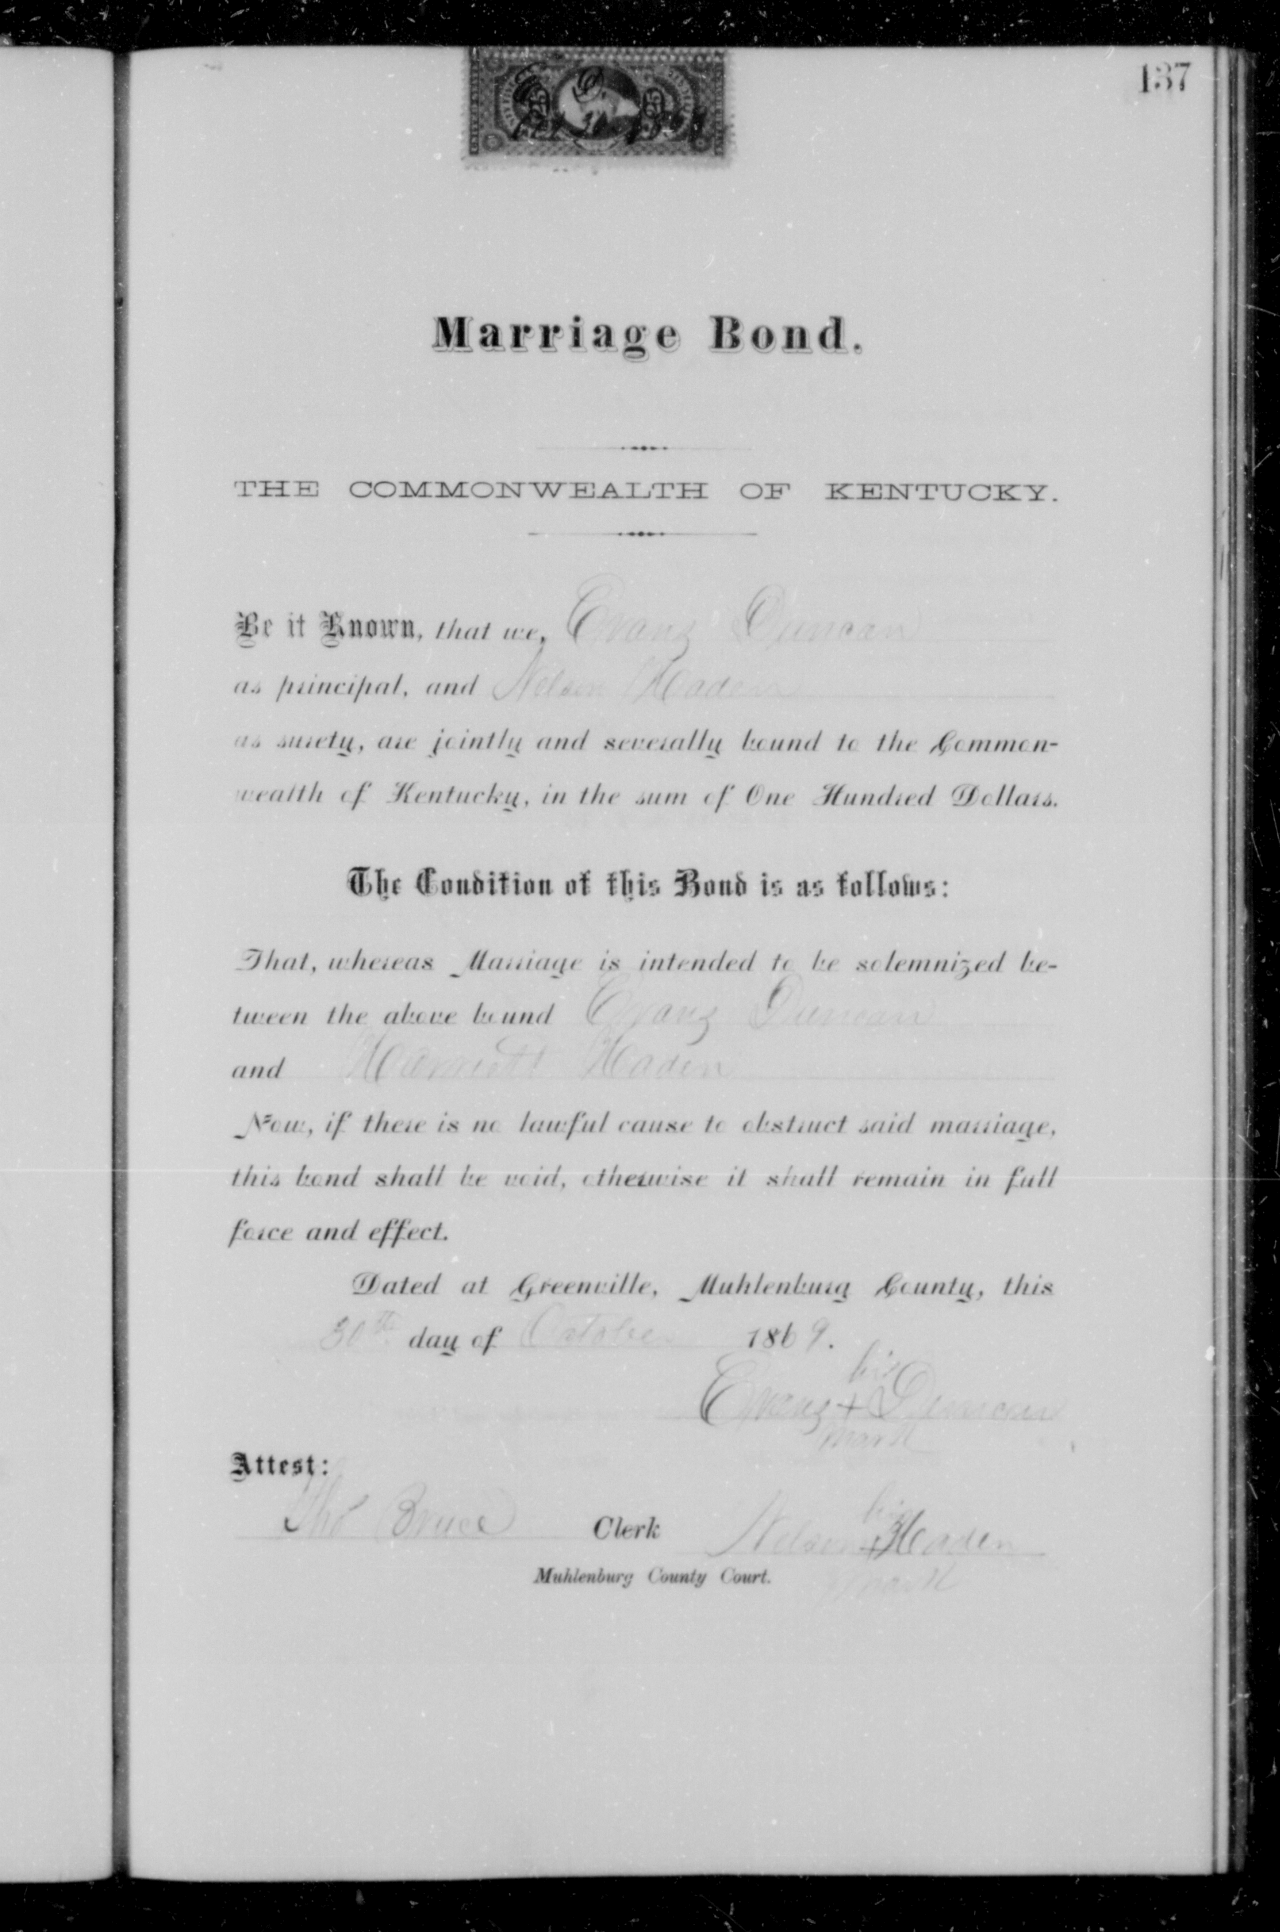 137
Marriage Bond.
THE COMMONWEALTH OF KENTUCKY.
Be it Known, that we, Evans Duncan
as principal, and Nelson Haden
as surety, are jointly and severally bound to the Common-
wealth of Kentucky, in the sum of One Hundred Dollars.
The Condition of this Bond is as follows:
That, whereas Marriage is intended to be solemnized be-
tween the above bound Evans Duncan
and Harriett Haden
Now, if there is no lawful cause to obstruct said marriage,
this bond shall be void, otherwise it shall remain in full
force and effect.
Dated at Greenville, Muhlenburg County, this
30th day of October 1869.
his
Evans + Duncan
mark
Attest:
his
Tho Bruce Clerk Nelson + Haden
Muhlenburg County Court. mark